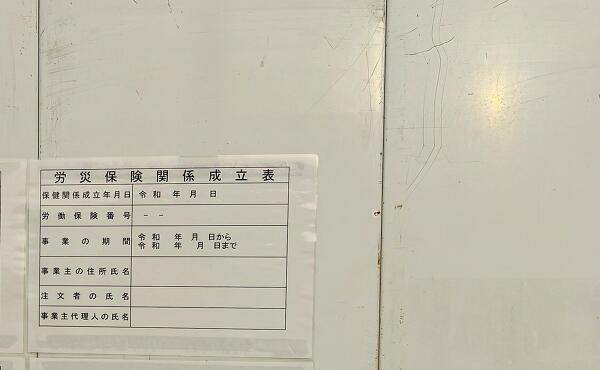 労災保険関係成立表
保健関係成立年月日 令和 年 月 日
労働保険番号 － －
事業の期間 令和 年 月 日から
令和 年 月 日まで
事業主の住所氏名
注文者の氏名
事業主代理人の氏名